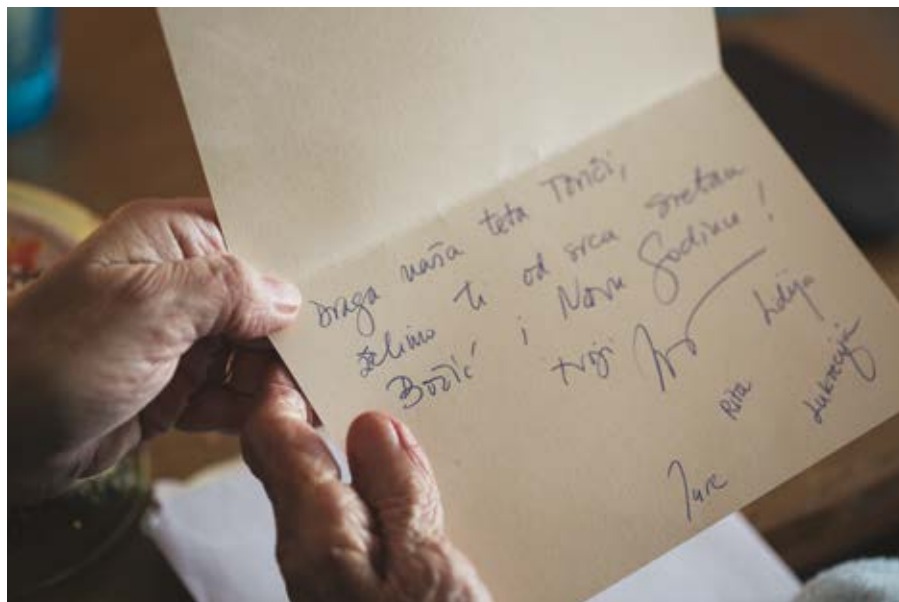 Draga naša teta Tonči,
želimo ti od srca sretan
Božić i Novu Godinu!
tvoji Lidija
Rita Lukrecija
Jure